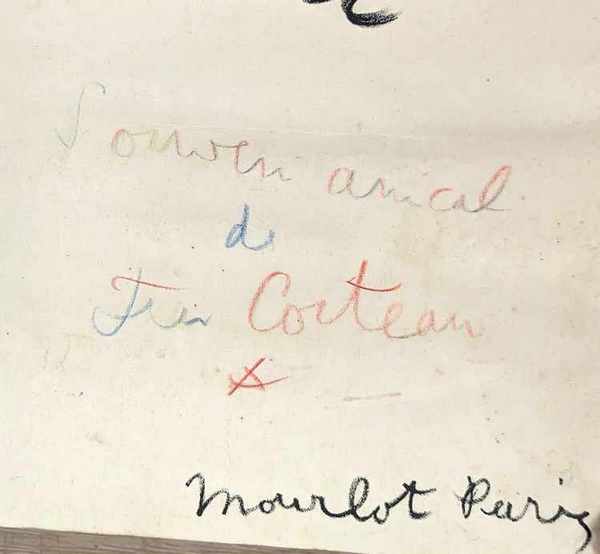 Souvenir amical
de
Jean Cocteau
Mourlot Paris